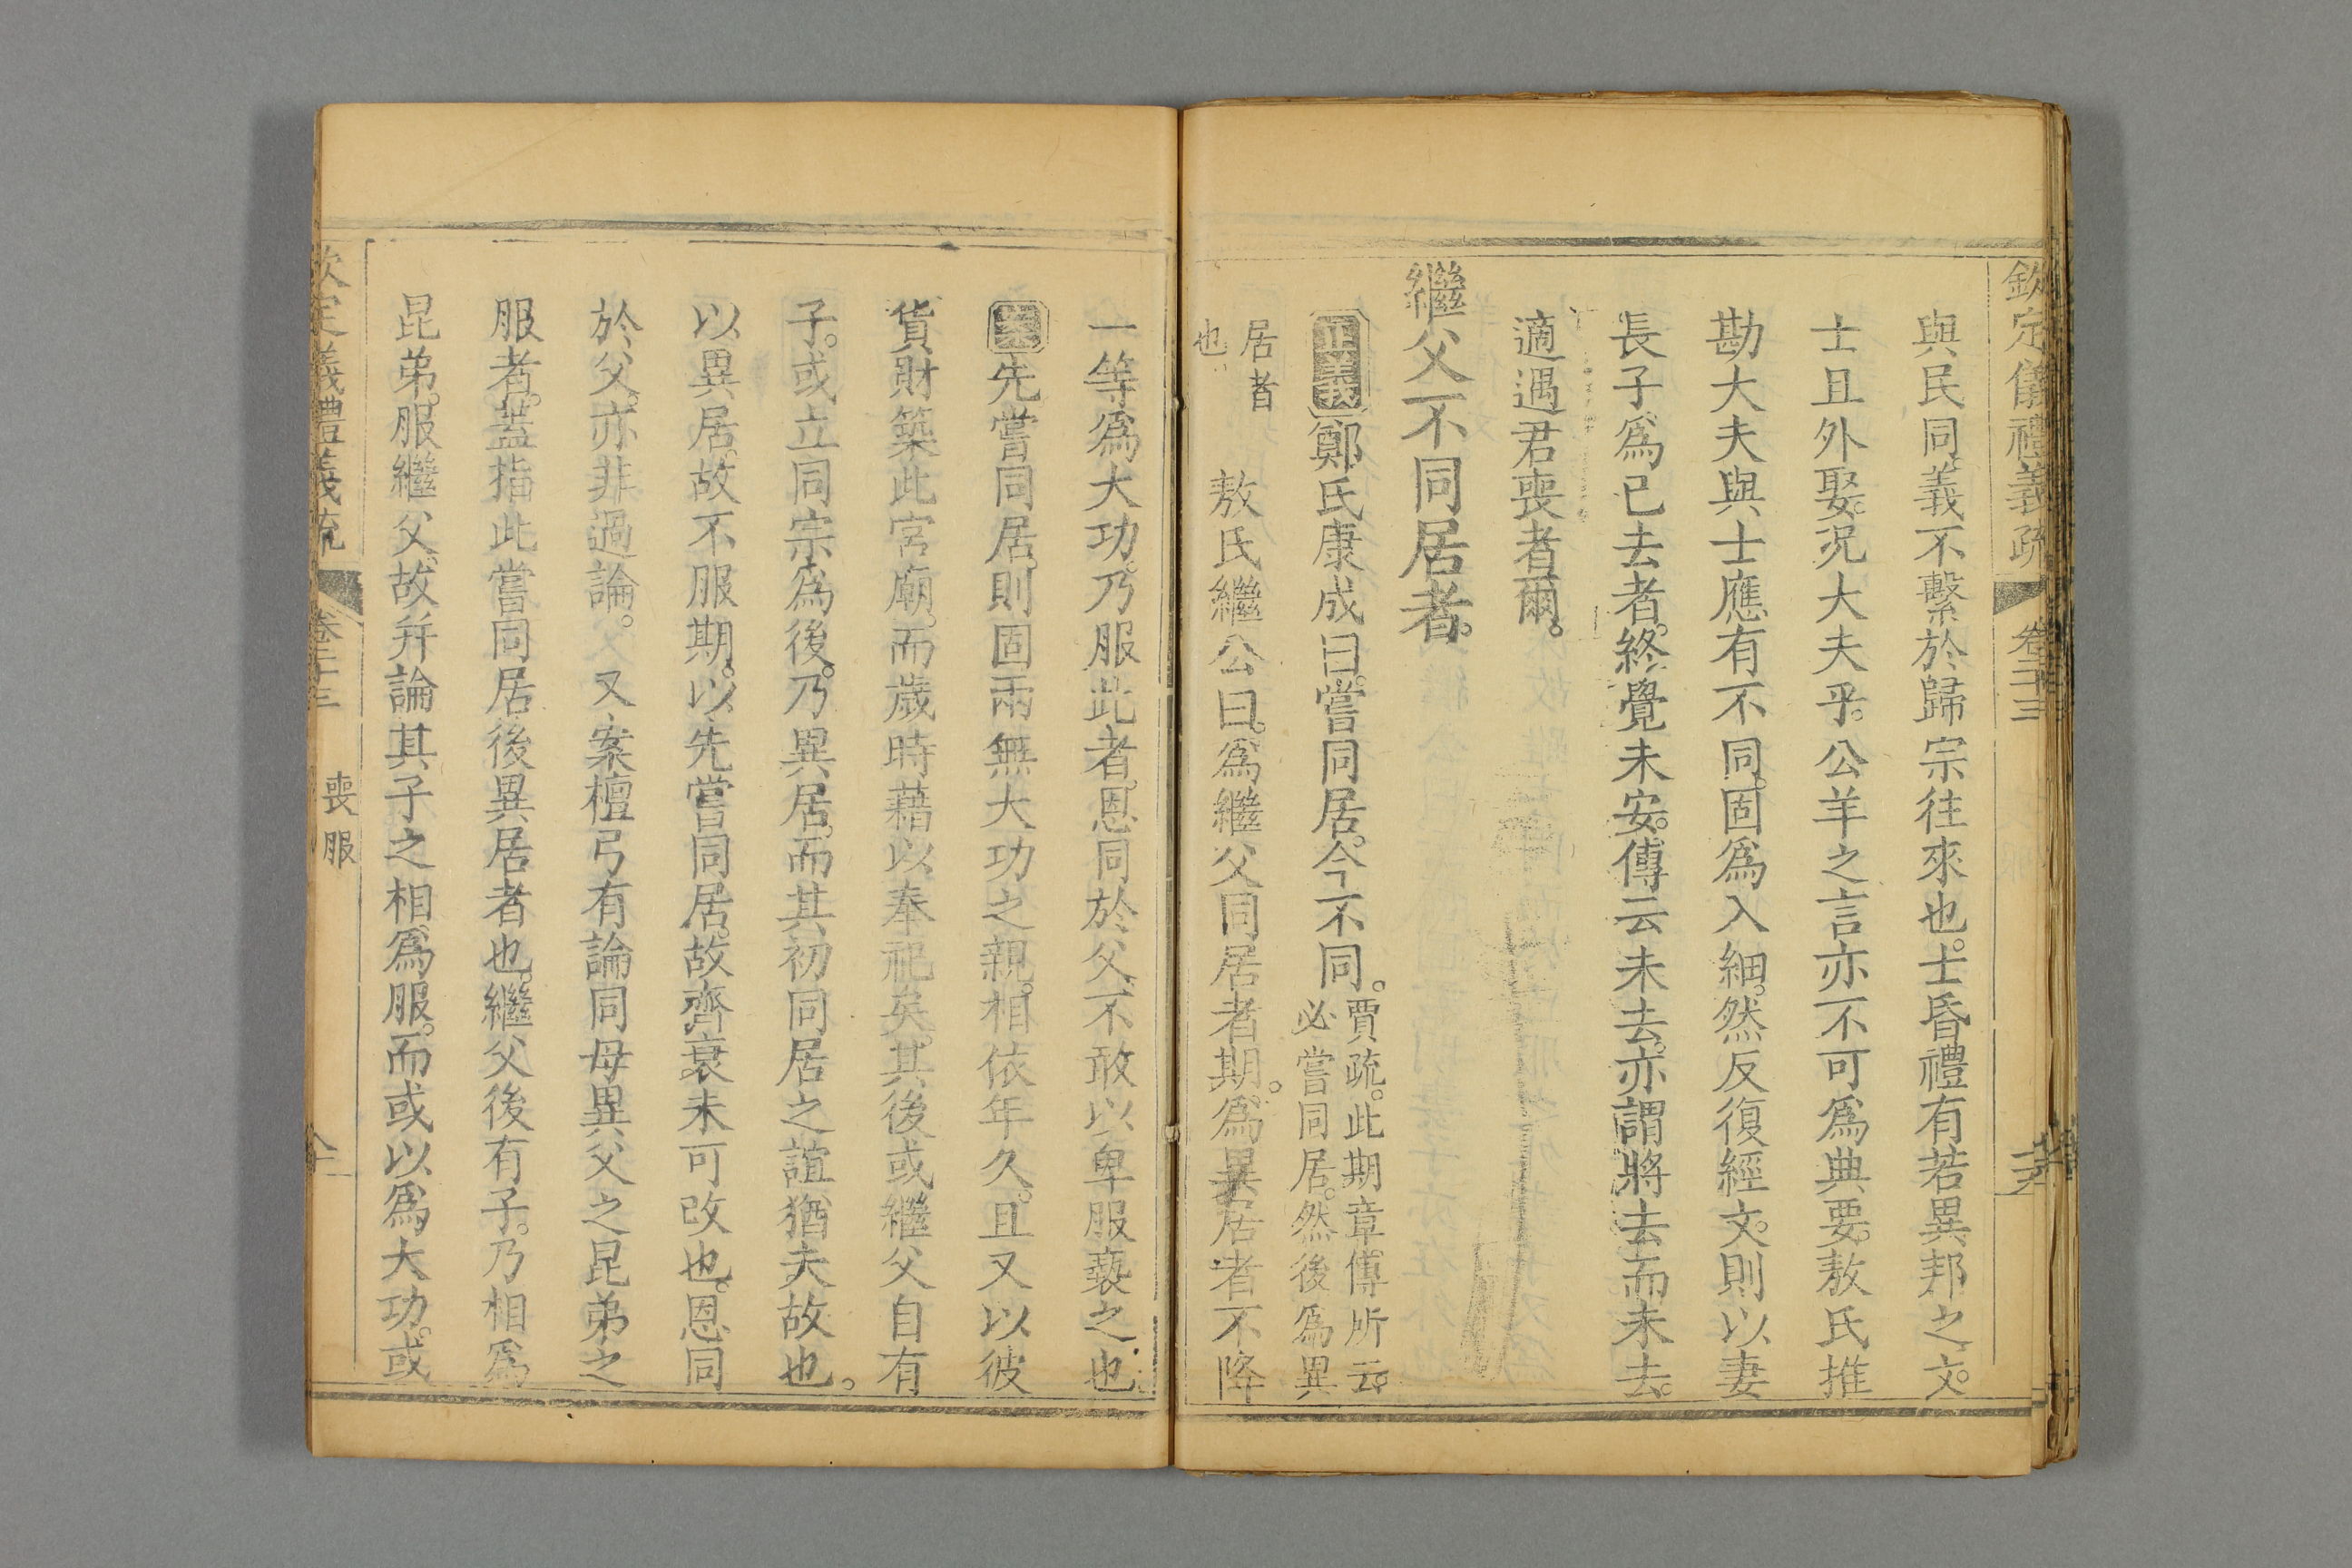 欽定儀禮義疏 卷二十三
與民同義不繫於歸宗往來也。士昏禮有若異邦之文。
士且外娶。況大夫乎。公羊之言亦不可爲典要。敖氏推
勘大夫與士應有不同。固爲入細。然反復經文。則以妻
長子爲已去者。終覺未安。傳云未去。亦謂將去而未去。
適遇君喪者爾。
繼父不同居者。
正義 鄭氏康成曰。嘗同居。今不同。
賈疏。此期章傳所云。
必嘗同居。然後爲異
居者
也
敖氏繼公曰。爲繼父同居者期。爲異居者不降
一等爲大功。乃服此者。恩同於父。不敢以卑服褻之也
案 先嘗同居。則固兩無大功之親。相依年久。且又以彼
貨財築此宮廟。而歲時藉以奉祀矣。其後或繼父自有
子。或立同宗爲後。乃異居。而其初同居之誼猶夫故也。
以異居。故不服期。以先嘗同居。故齊衰未可改也。恩同
於父。亦非過論。 又案檀弓有論同母異父之昆弟之
服者。蓋指此嘗同居後異居者也。繼父後有子。乃相爲
昆弟。服繼父。故幷論其子之相爲服。而或以爲大功。或
欽定儀禮義疏 卷二十三 喪服